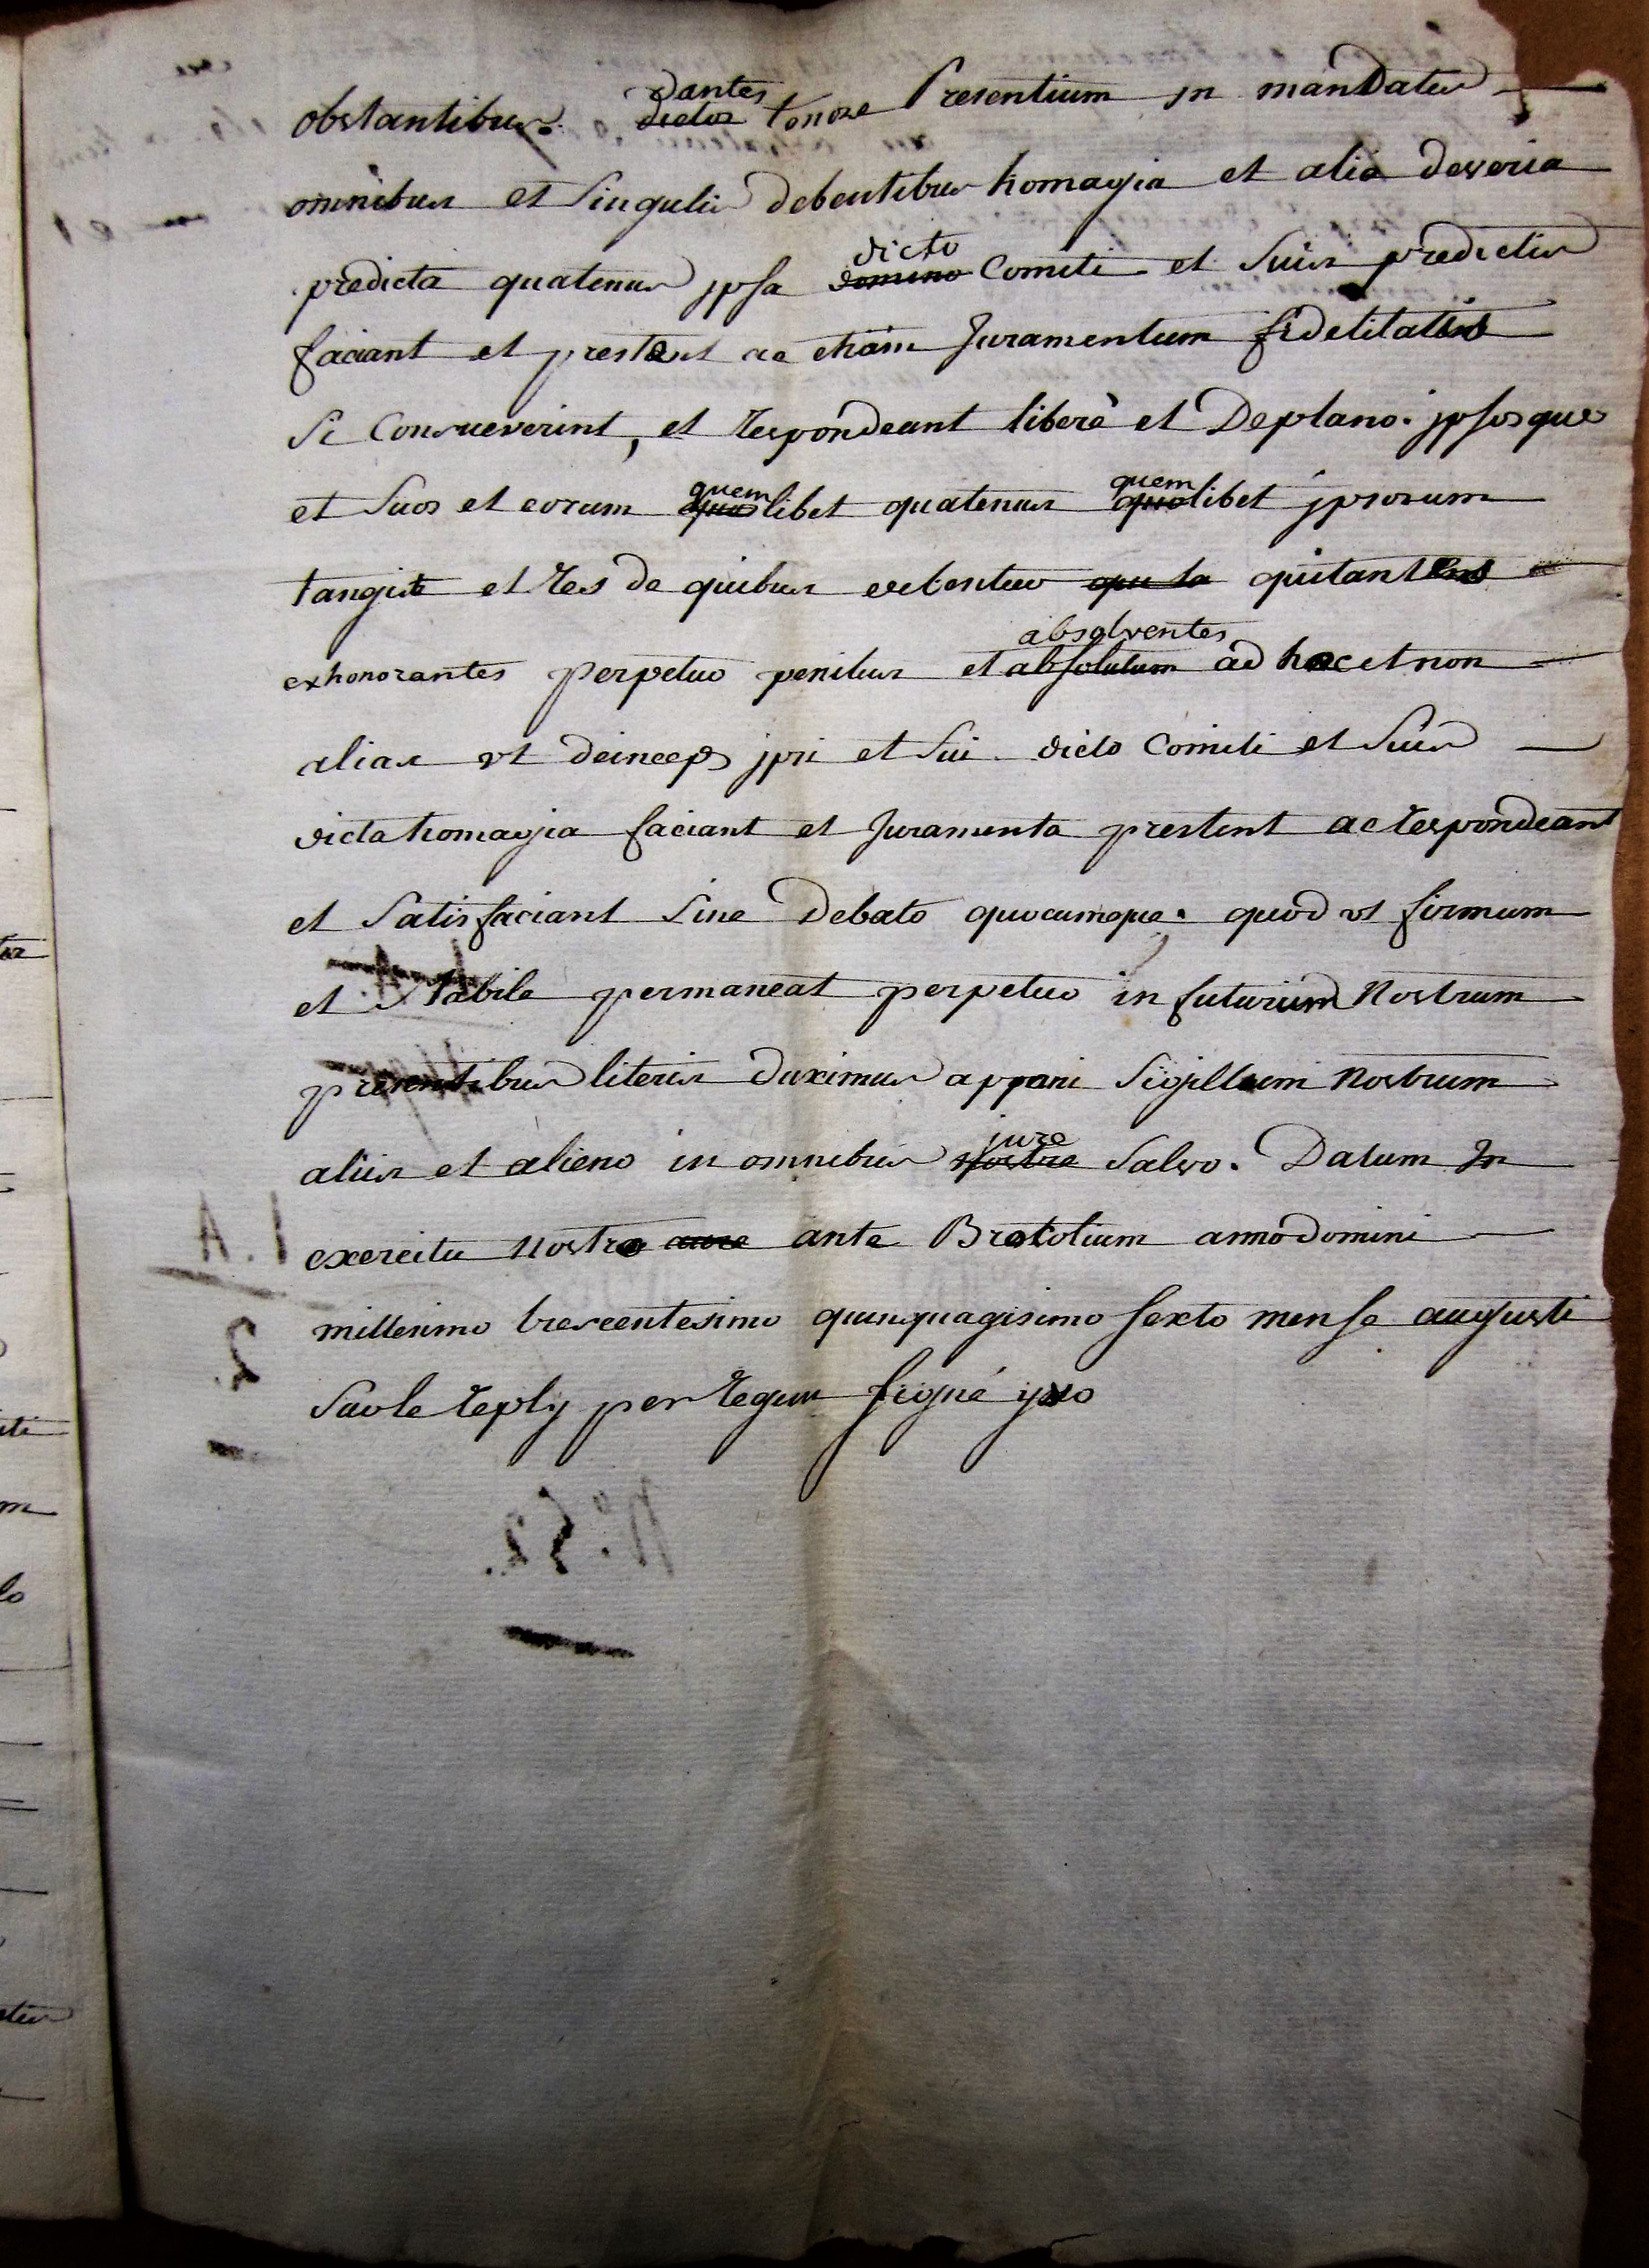 obstantibus. dantes
dictos tenore Presentium in mandatis
omnibus et Singulis debentibus homagia et alia deveria
predicta quatenus ipsa dicto
domino Comiti et Suis predictis
faciant et prestent ac etiam Juramentum fidelitatis
Si Consueverint, et respondeant liberè et De plano. ipsosque
et Suos et eorum quem
quoslibet quatenus quem
quolibet ipsorum
tangit et res de quibus debentur quitantes
exhonorantes perpetuo penitus et absolventes
absolutum ad hoc et non
alias vt deinceps ipsi et Sui dicto Comiti et Suis
dicta homagia faciant et Juramenta prestent ac respondeant
et Satisfaciant Sine Debato quocumque. quod vt firmum
et Stabile permaneat perpetuo in futurum Nostrum
presentibus literis duximus apponi Sigillum Nostrum
aliis et alieno in omnibus jure
Nostre Salvo. Datum In
exercitu Nostro ante Bretolium anno domini
millesimo trescentesimo quinquagisimo sexto mense augusti
per regem signé yvo